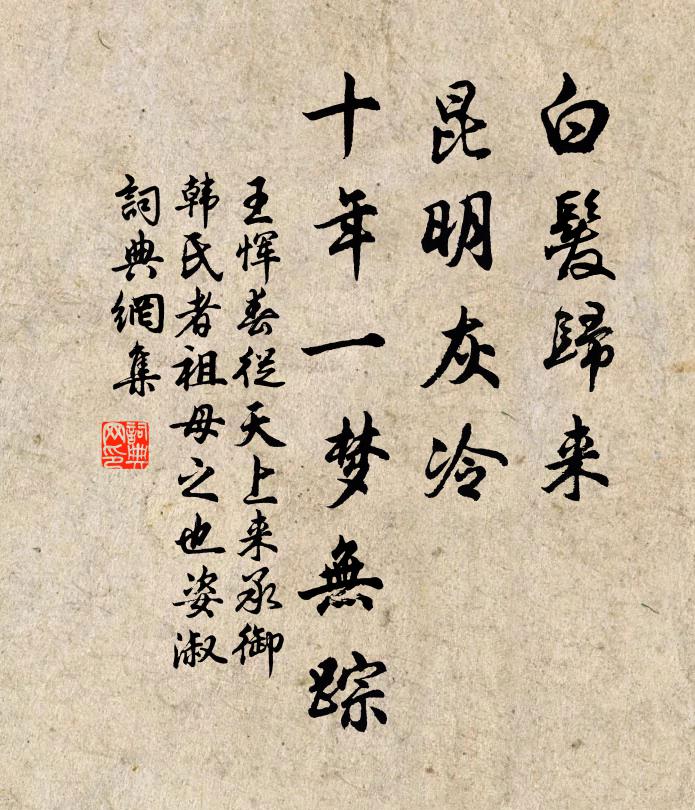 白髮歸来
昆明灰冷
十年一梦無踪
王恽春從天上来承御
韩氏者祖母之也姿淑
詞典網集
詞典网印